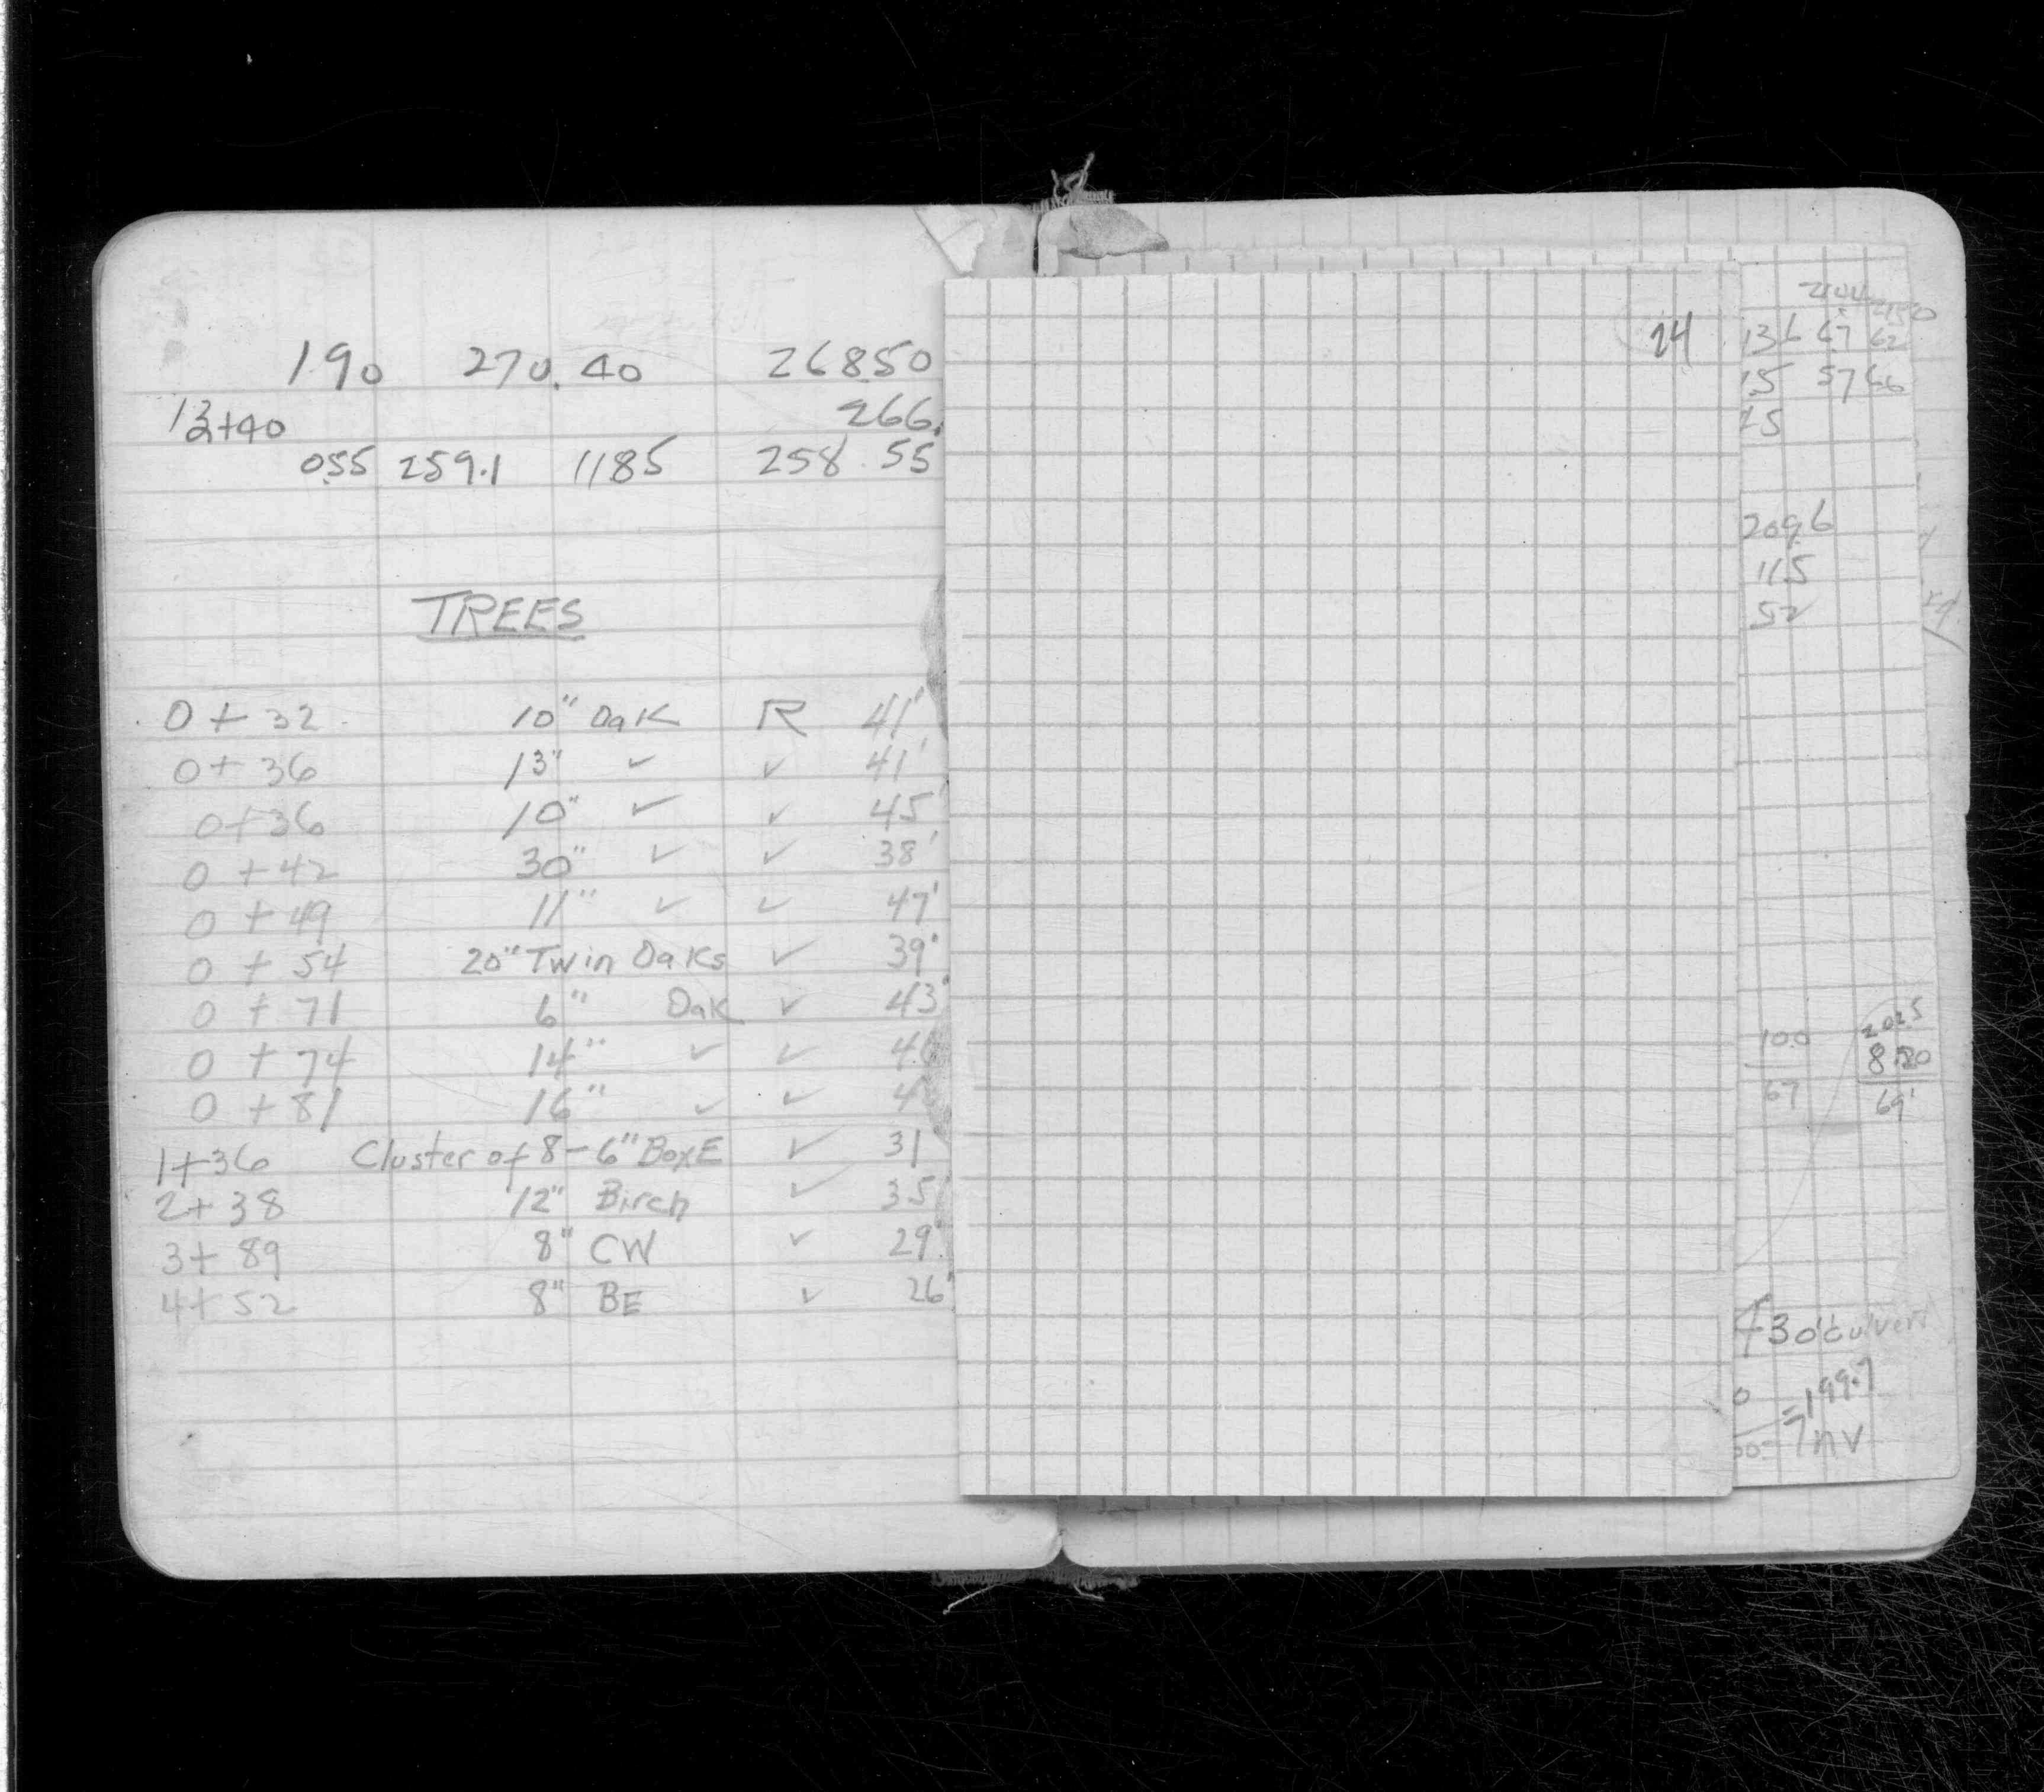 190 270.40 26850
13+40 266.
055 259.1 1185 258.55
TREES
0+32 10" Oak R 41'
0+36 13" ✓ ✓ 41'
0+36 10" ✓ ✓ 45'
0+42 30" ✓ ✓ 38'
0+49 11" ✓ ✓ 47'
0+54 20" Twin Oaks ✓ 39'
0+71 6" Oak ✓ 43'
0+74 14" ✓ ✓
0+81 16" ✓ ✓ 4
1+36 Cluster of 8-6" BoxE ✓ 31
2+38 12" Birch ✓ 35
3+89 8" CW ✓ 29'
4+52 8" BE ✓ 26'
24
136 67 62
15 57 66
209.6
115
52
100
67
2025
69'
30" Culvert
=199.7
Inv